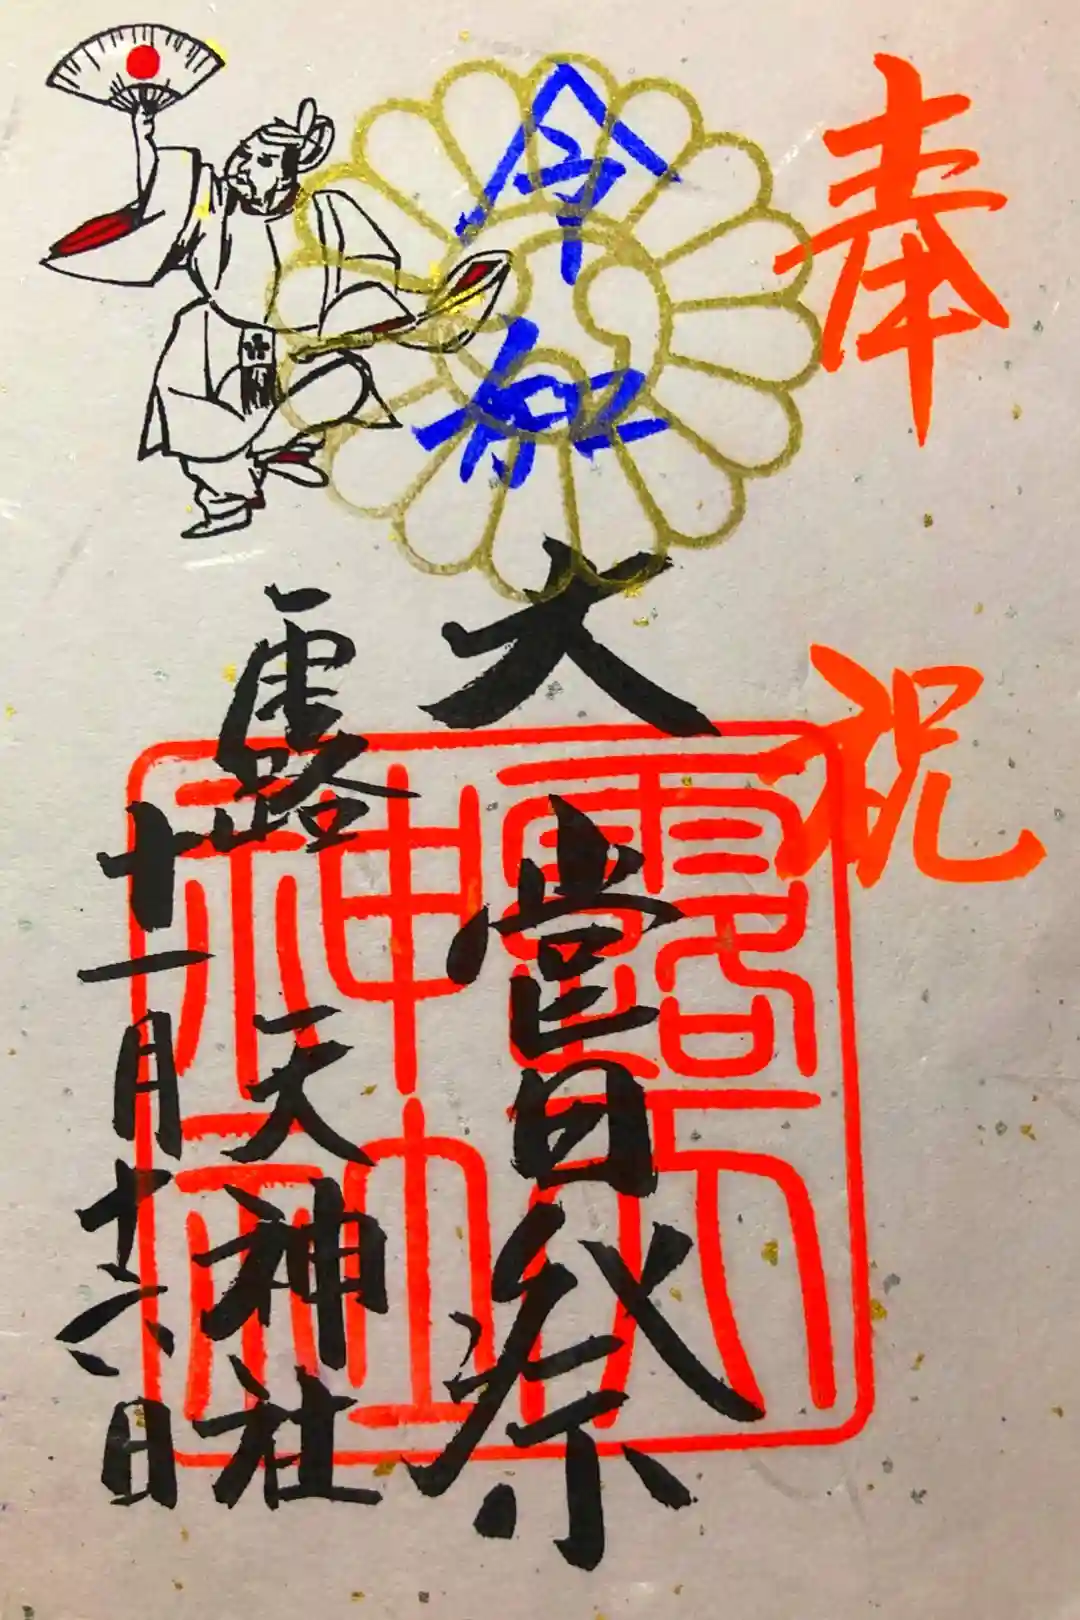 奉祝
令和
大嘗祭
露天神社
十一月十六日
露天
神社